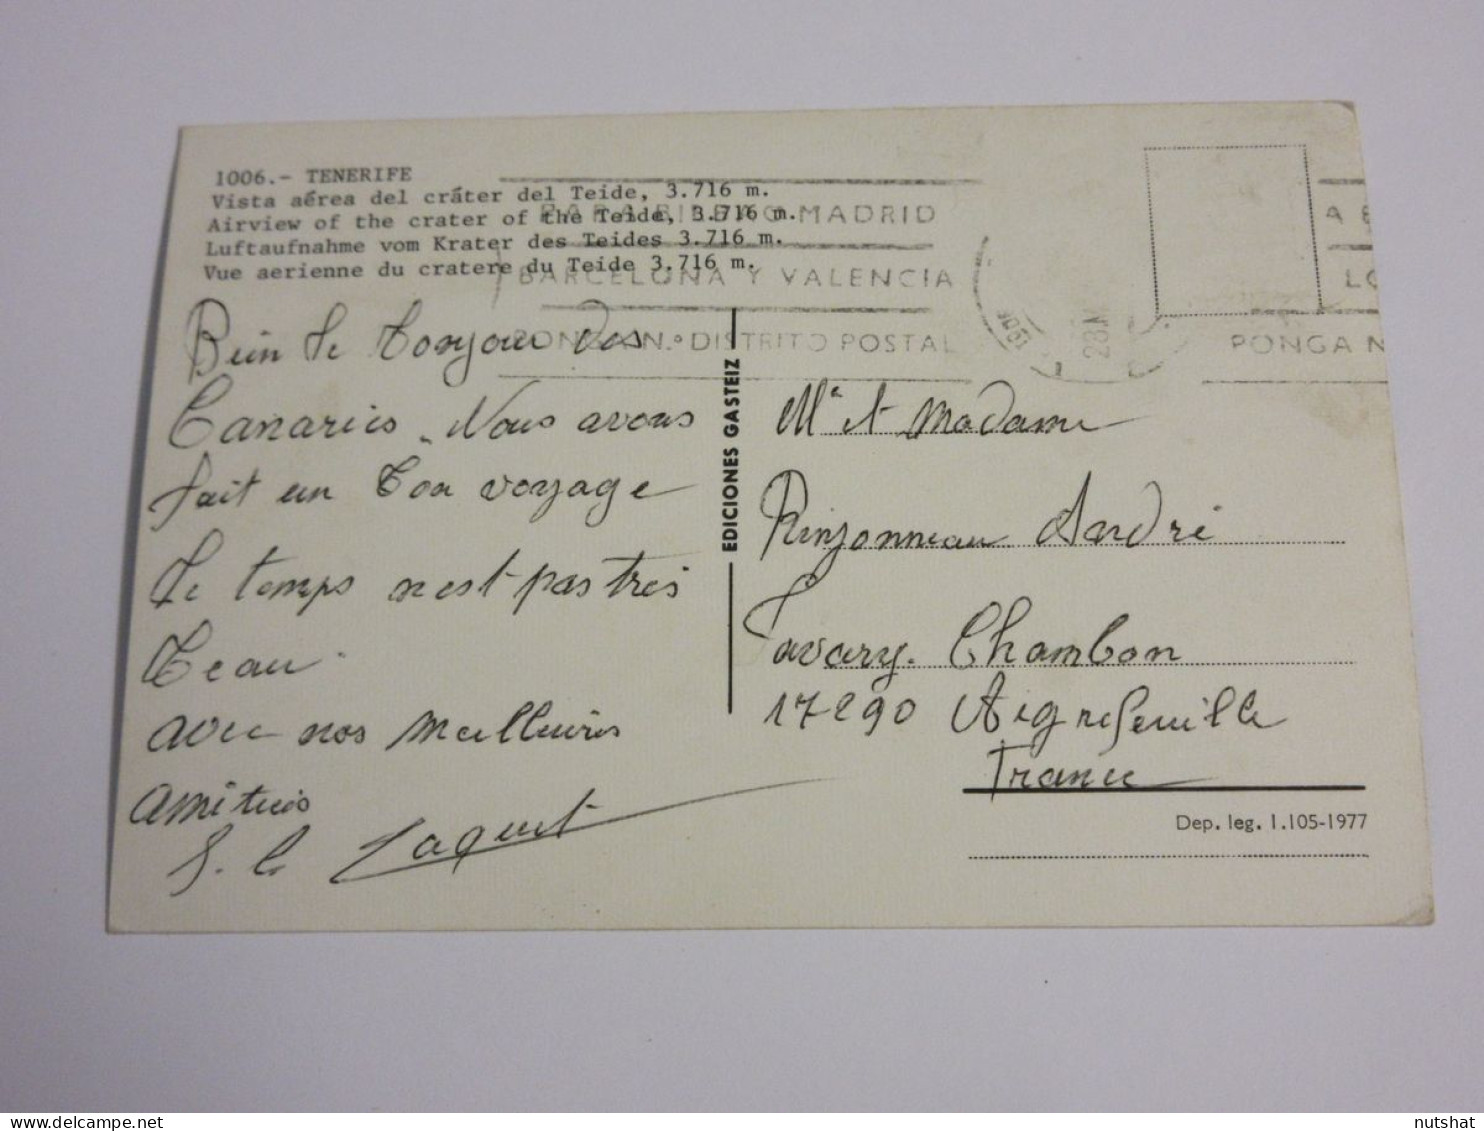 1006.- TENERIFE
Vista aérea del cráter del Teide, 3.716 m.
Airview of the crater of the Teide, 3.716 m.
Luftaufnahme vom Krater des Teides 3.716 m.
Vue aerienne du cratere du Teide 3.716 m.
PARA BILBAO MADRID
BARCELONA Y VALENCIA
PONGA N.º DISTRITO POSTAL
A B
LO
PONGA N
Bien le bonjour des
Canaries. Nous avons
fait un bon voyage
Le temps n'est pas très
beau.
avec nos meilleures
amitiés
Laquet
EDICIONES GASTEIZ
Mr et Madame
Rinjonneau André
Tavary. Chambon
17290 Aigrefeuille
France
Dep. leg. 1.105-1977
nutshat